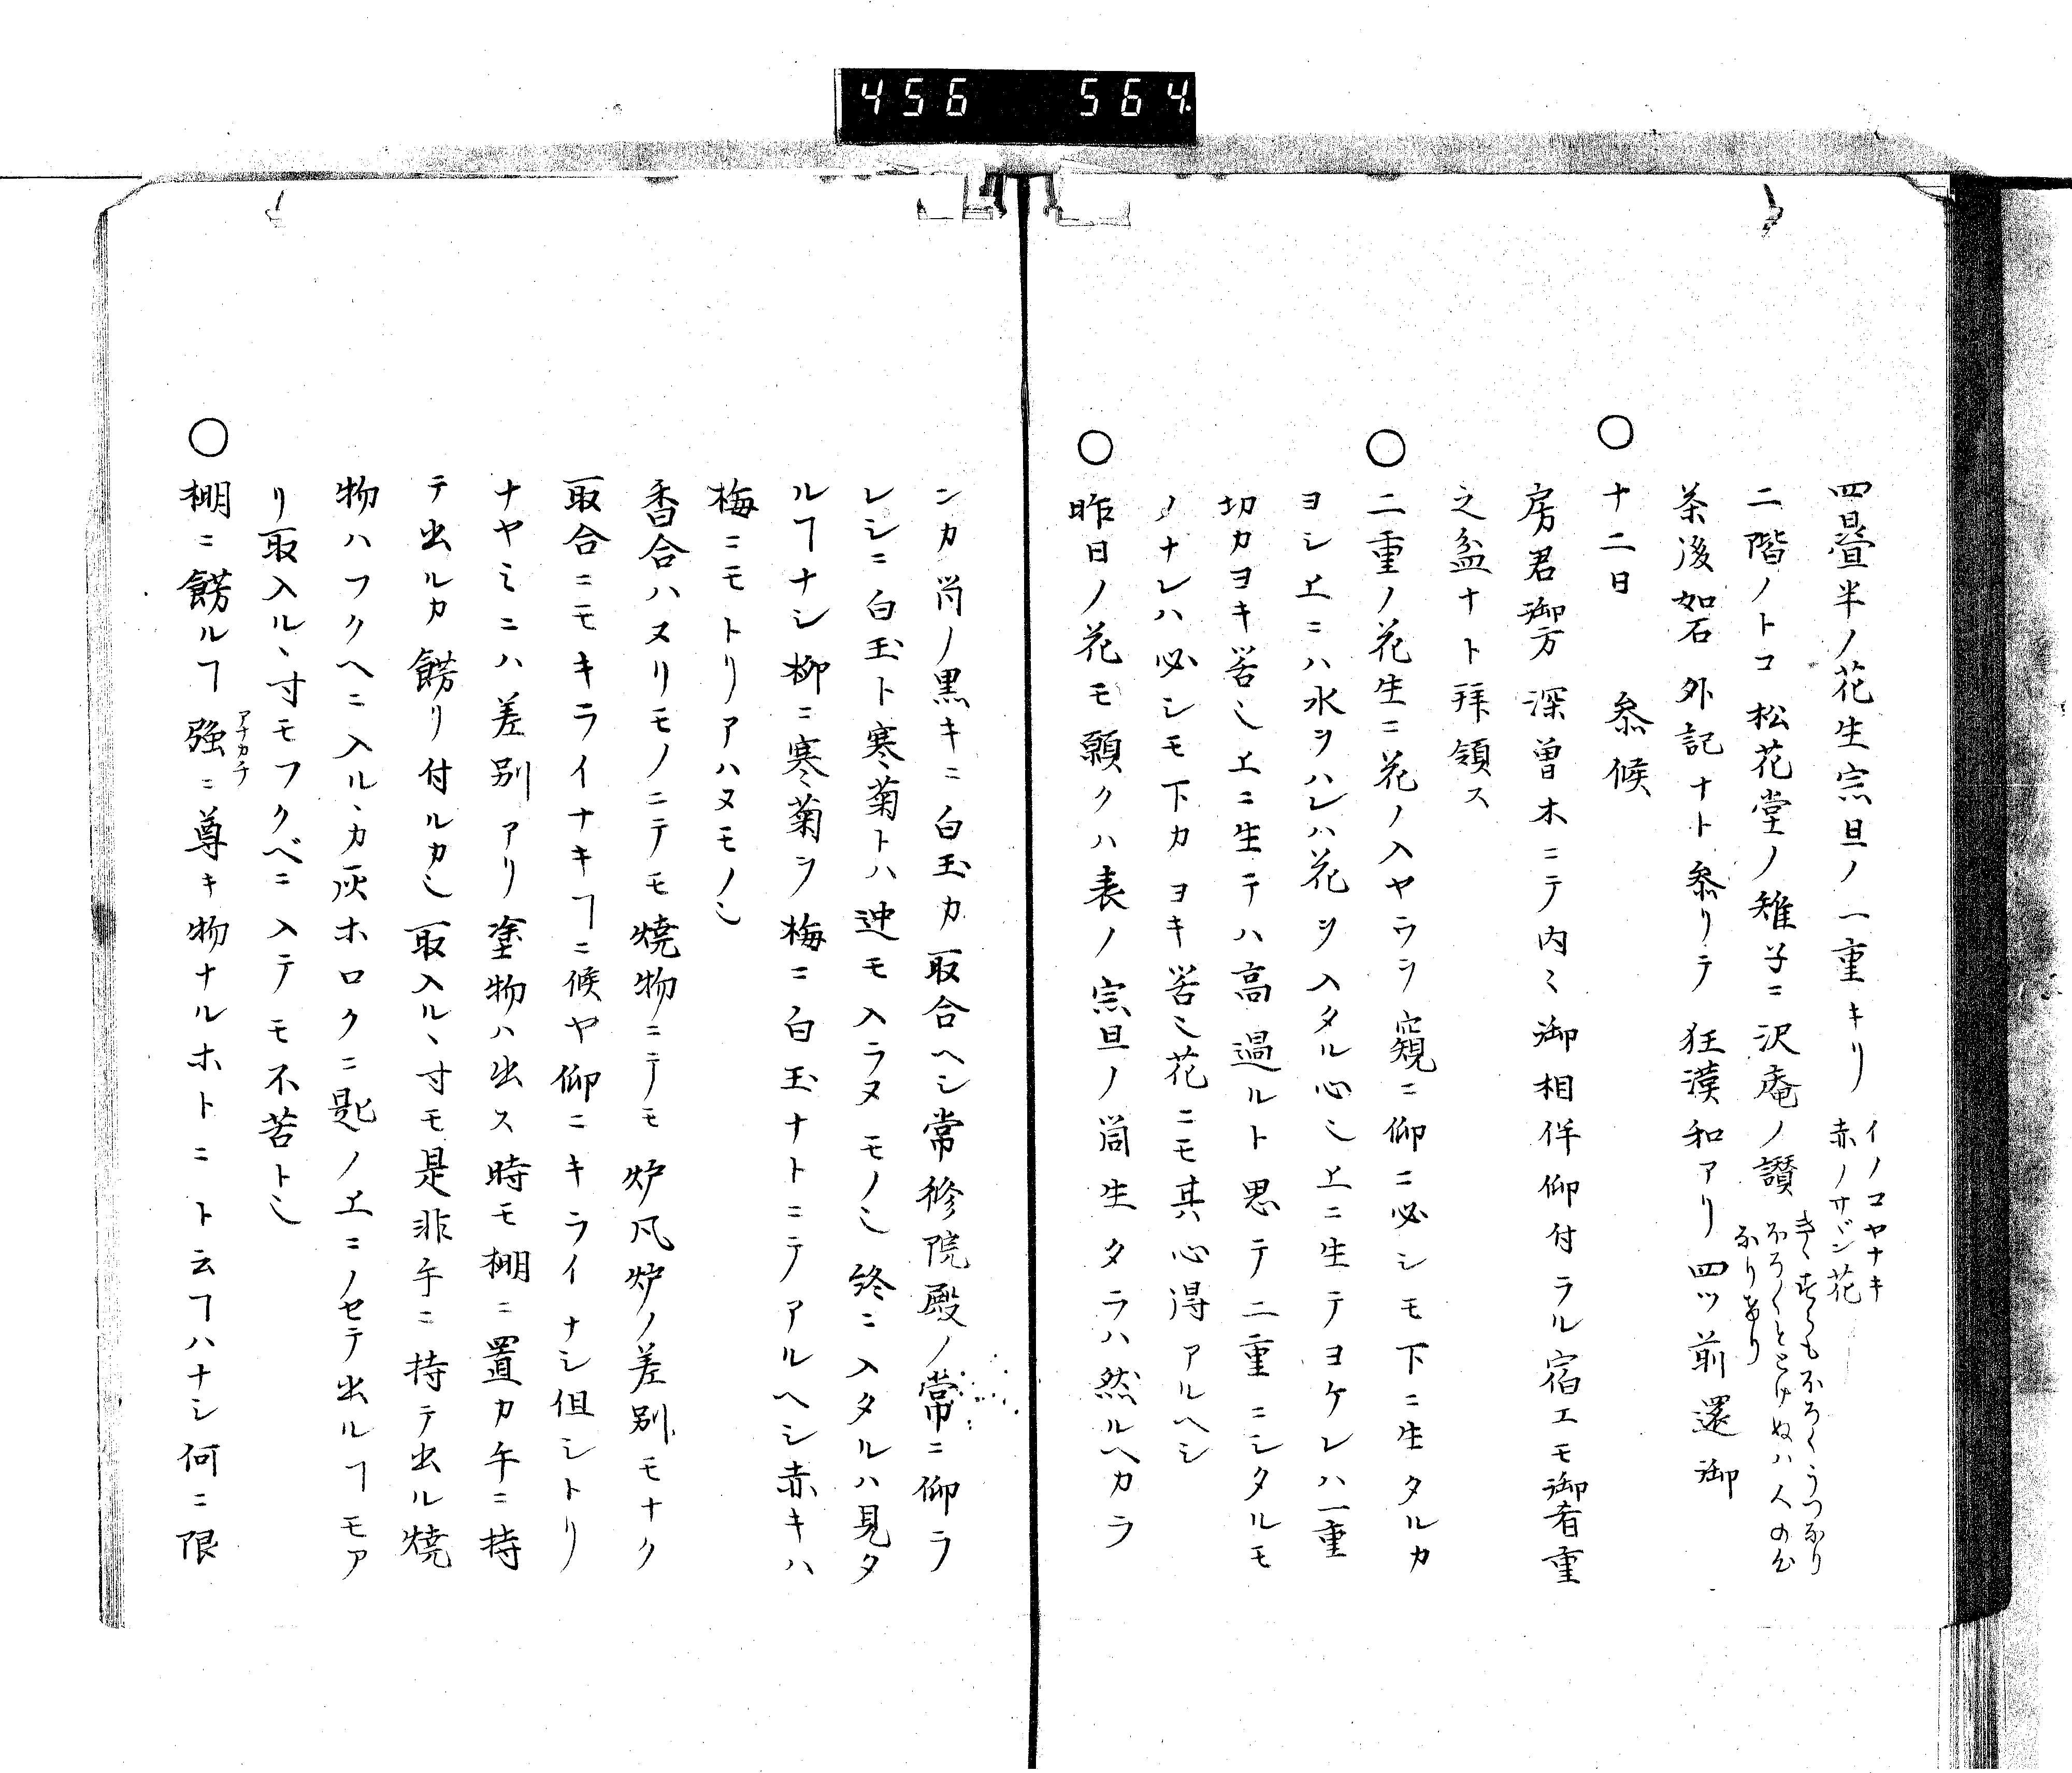 456 564
四畳半ノ花生宗旦ノ一重キリ イノコヤナキ
赤ノサヾン花
二階ノトコ松花堂ノ雉子ニ沢庵ノ讃
なりけり
茶後如石外記ナト参リテ狂漢和アリ四ツ前還御
○十二日 参候
房君御方深曽木ニテ内〻御相伴仰付ラル宿エモ御肴重
之盆ナト拝領ス
○二重ノ花生ニ花ノ入ヤウヲ窺ニ仰ニ必シモ下ニ生タルカ
ヨシ上ニハ水ヲハレハ花ヲ入タル心也上ニ生テヨケレハ一重
切カヨキ筈也上ニ生テハ高過ルト思テ二重ニシタルモ
ノナレハ必シモ下カヨキ筈也花ニモ其心得アルヘシ
○昨日ノ花モ願クハ表ノ宗旦ノ筒生タラハ然ルヘカラ
ンカ筒ノ黒キニ白玉カ取合ヘシ常修院殿ノ常ニ仰ラ
レシニ白玉ト寒菊トハ迚モ入ラヌモノ也終ニ入タルハ見タ
ルヿナシ柳ニ寒菊ヲ梅ニ白玉ナトニテアルヘシ赤キハ
梅ニモトリアハヌモノ也
香合ハヌリモノニテモ焼物ニテモ炉風炉ノ差別モナク
取合ニモキライナキヿニ候ヤ仰ニキライナシ但シトリ
ナヤミニハ差別アリ塗物ハ出ス時モ棚ニ置カ手ニ持
テ出ルカ餝リ付ルカ也取入ル、寸モ是非手ニ持テ出ル焼
物ハフクヘニ入ル、カ灰ホロクニ匙ノ上ニノセテ出ルヿモア
リ取入ル、寸モフクベニ入テモ不苦ト也
○棚ニ餝ルヿ強ニ尊キ物ナルホトニト云ヿハナシ何ニ限
アナカチ